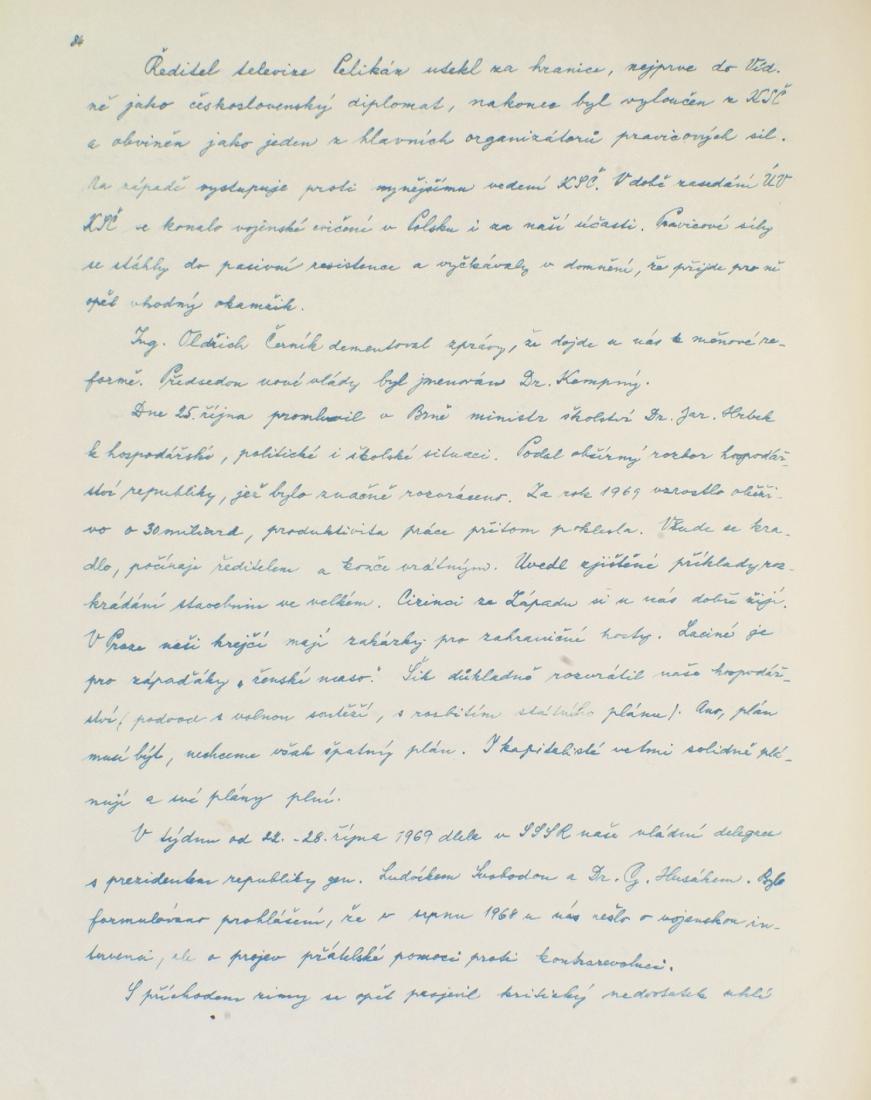 84
Ředitel televize Pelikán utekl za hranice, nejprve do Víd-
ně jako československý diplomat, nakonec byl vyloučen z KSČ
a obviněn jako jeden z hlavních organizátorů pravicových sil.
Na západě vystupuje proti nynějšímu vedení KSČ. V době zasedání ÚV
KSČ se konalo vojenské cvičení v Polsku i za naší účasti. Pravicové síly
se stáhly do pasivní resistence a vyčkávaly v domnění, že přijde pro ně
opět vhodný okamžik.
Ing. Oldřich Černík dementoval zprávy, že dojde u nás k měnové re-
formě. Předsedou nové vlády byl jmenován Dr. Kempný.
Dne 25. října promluvil v Brně ministr školství Dr. Jar. Hrbek
k hospodářské, politické i školské situaci. Podal obšírný rozbor hospodář-
ství republiky, jež bylo značně rozvráceno. Za rok 1969 vzrostlo oběži-
vo o 30 miliard, produktivita práce přitom poklesla. Všude se kra-
dlo, počínaje ředitelem a konče vrátným. Uvedl zjištěné příklady roz-
krádání stavebnin ve velkém. Cizinci ze Západu si u nás dobře žijí.
V Praze naši krejčí mají zakázky pro zahraniční hosty. Laciné je
pro západáky "ženské maso." Šik důkladně rozvrátil naše hospodář-
ství (podvod s volnou soutěží, s rozbitím státního plánu). Ano, plán
musí být, nechceme však špatný plán. I kapitalisté velmi solidně plá-
nují a své plány plní.
V týdnu od 22. - 28. října 1969 dlela v SSSR naše vládní delegace
s prezidentem republiky gen. Ludvíkem Svobodou a Dr. G. Husákem. Bylo
formulováno prohlášení, že v srpnu 1968 u nás nešlo o vojenskou in-
tervenci, ale o projev přátelské pomoci proti kontrarevoluci.
S příchodem zimy se opět projevil kritický nedostatek uhlí